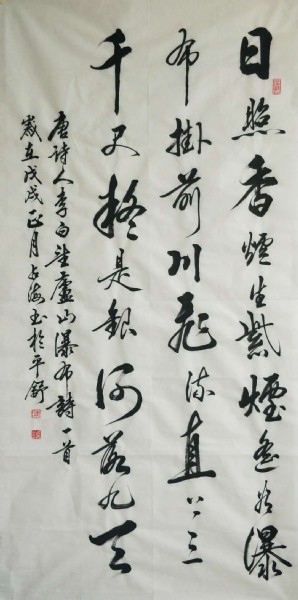 日照香爐生紫煙遙看瀑
布掛前川飛流直下三
千尺疑是銀河落九天
唐詩人李白望廬山瀑布詩一首
歲在戊戌正月海书於平舒